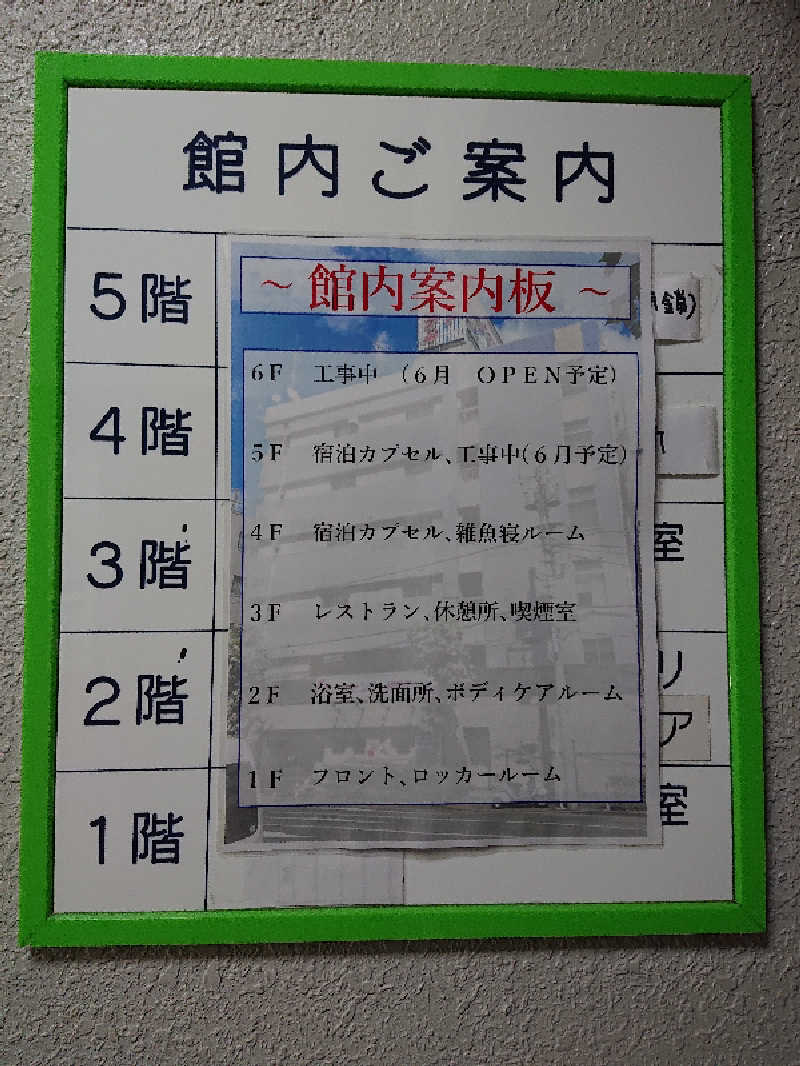 館内ご案内
5階
~ 館内案内板 ~
6F 工事中 (6月 OPEN予定)
4階
5F 宿泊カプセル、工事中(6月予定)
3階
4F 宿泊カプセル、雑魚寝ルーム
室
3F レストラン、休憩所、喫煙室
2階
リ
2F 浴室、洗面所、ボディケアルーム
ア
1階
1F フロント、ロッカールーム
室